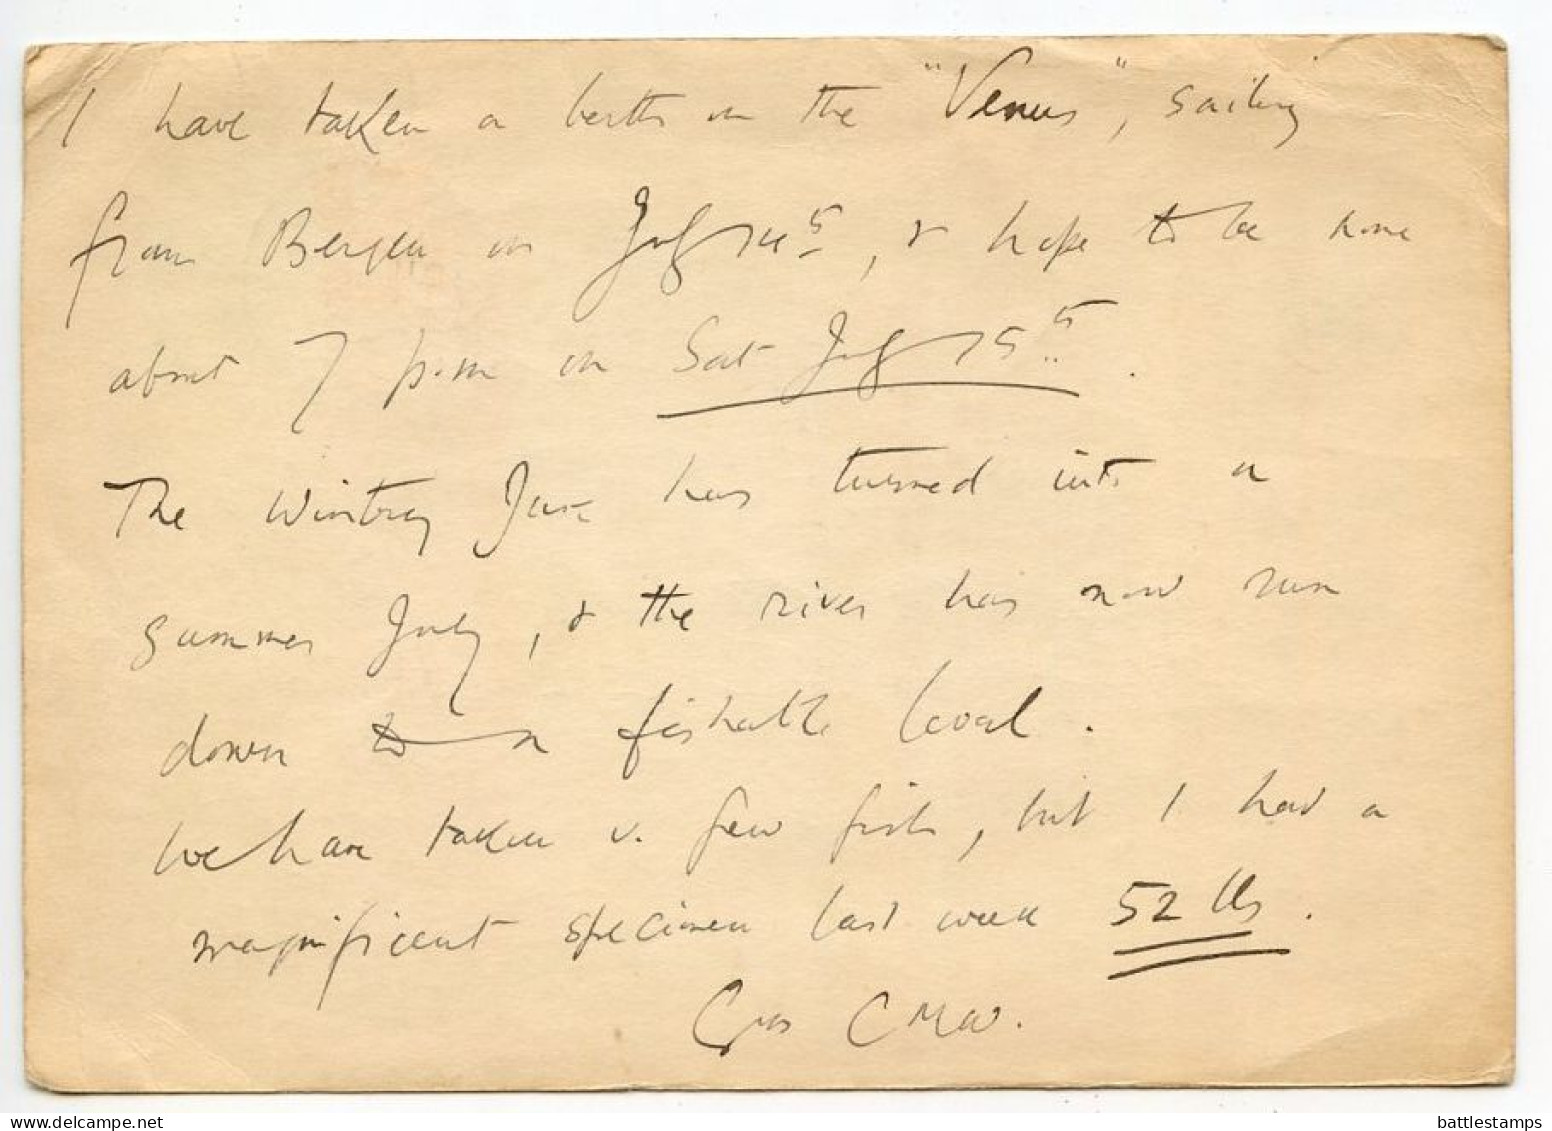 I have taken a berth on the "Venus", sailing
from Bergen on July 14th, & hope to be home
about 7 p.m. on Sat July 15th.
The Wintry June has turned into a
summer July, & the river has now run
down to a fishable level.
We have taken v. few fish, but I had a
magnificent specimen last week 52 lbs.
CMW.
delcampe.net
battlestamps